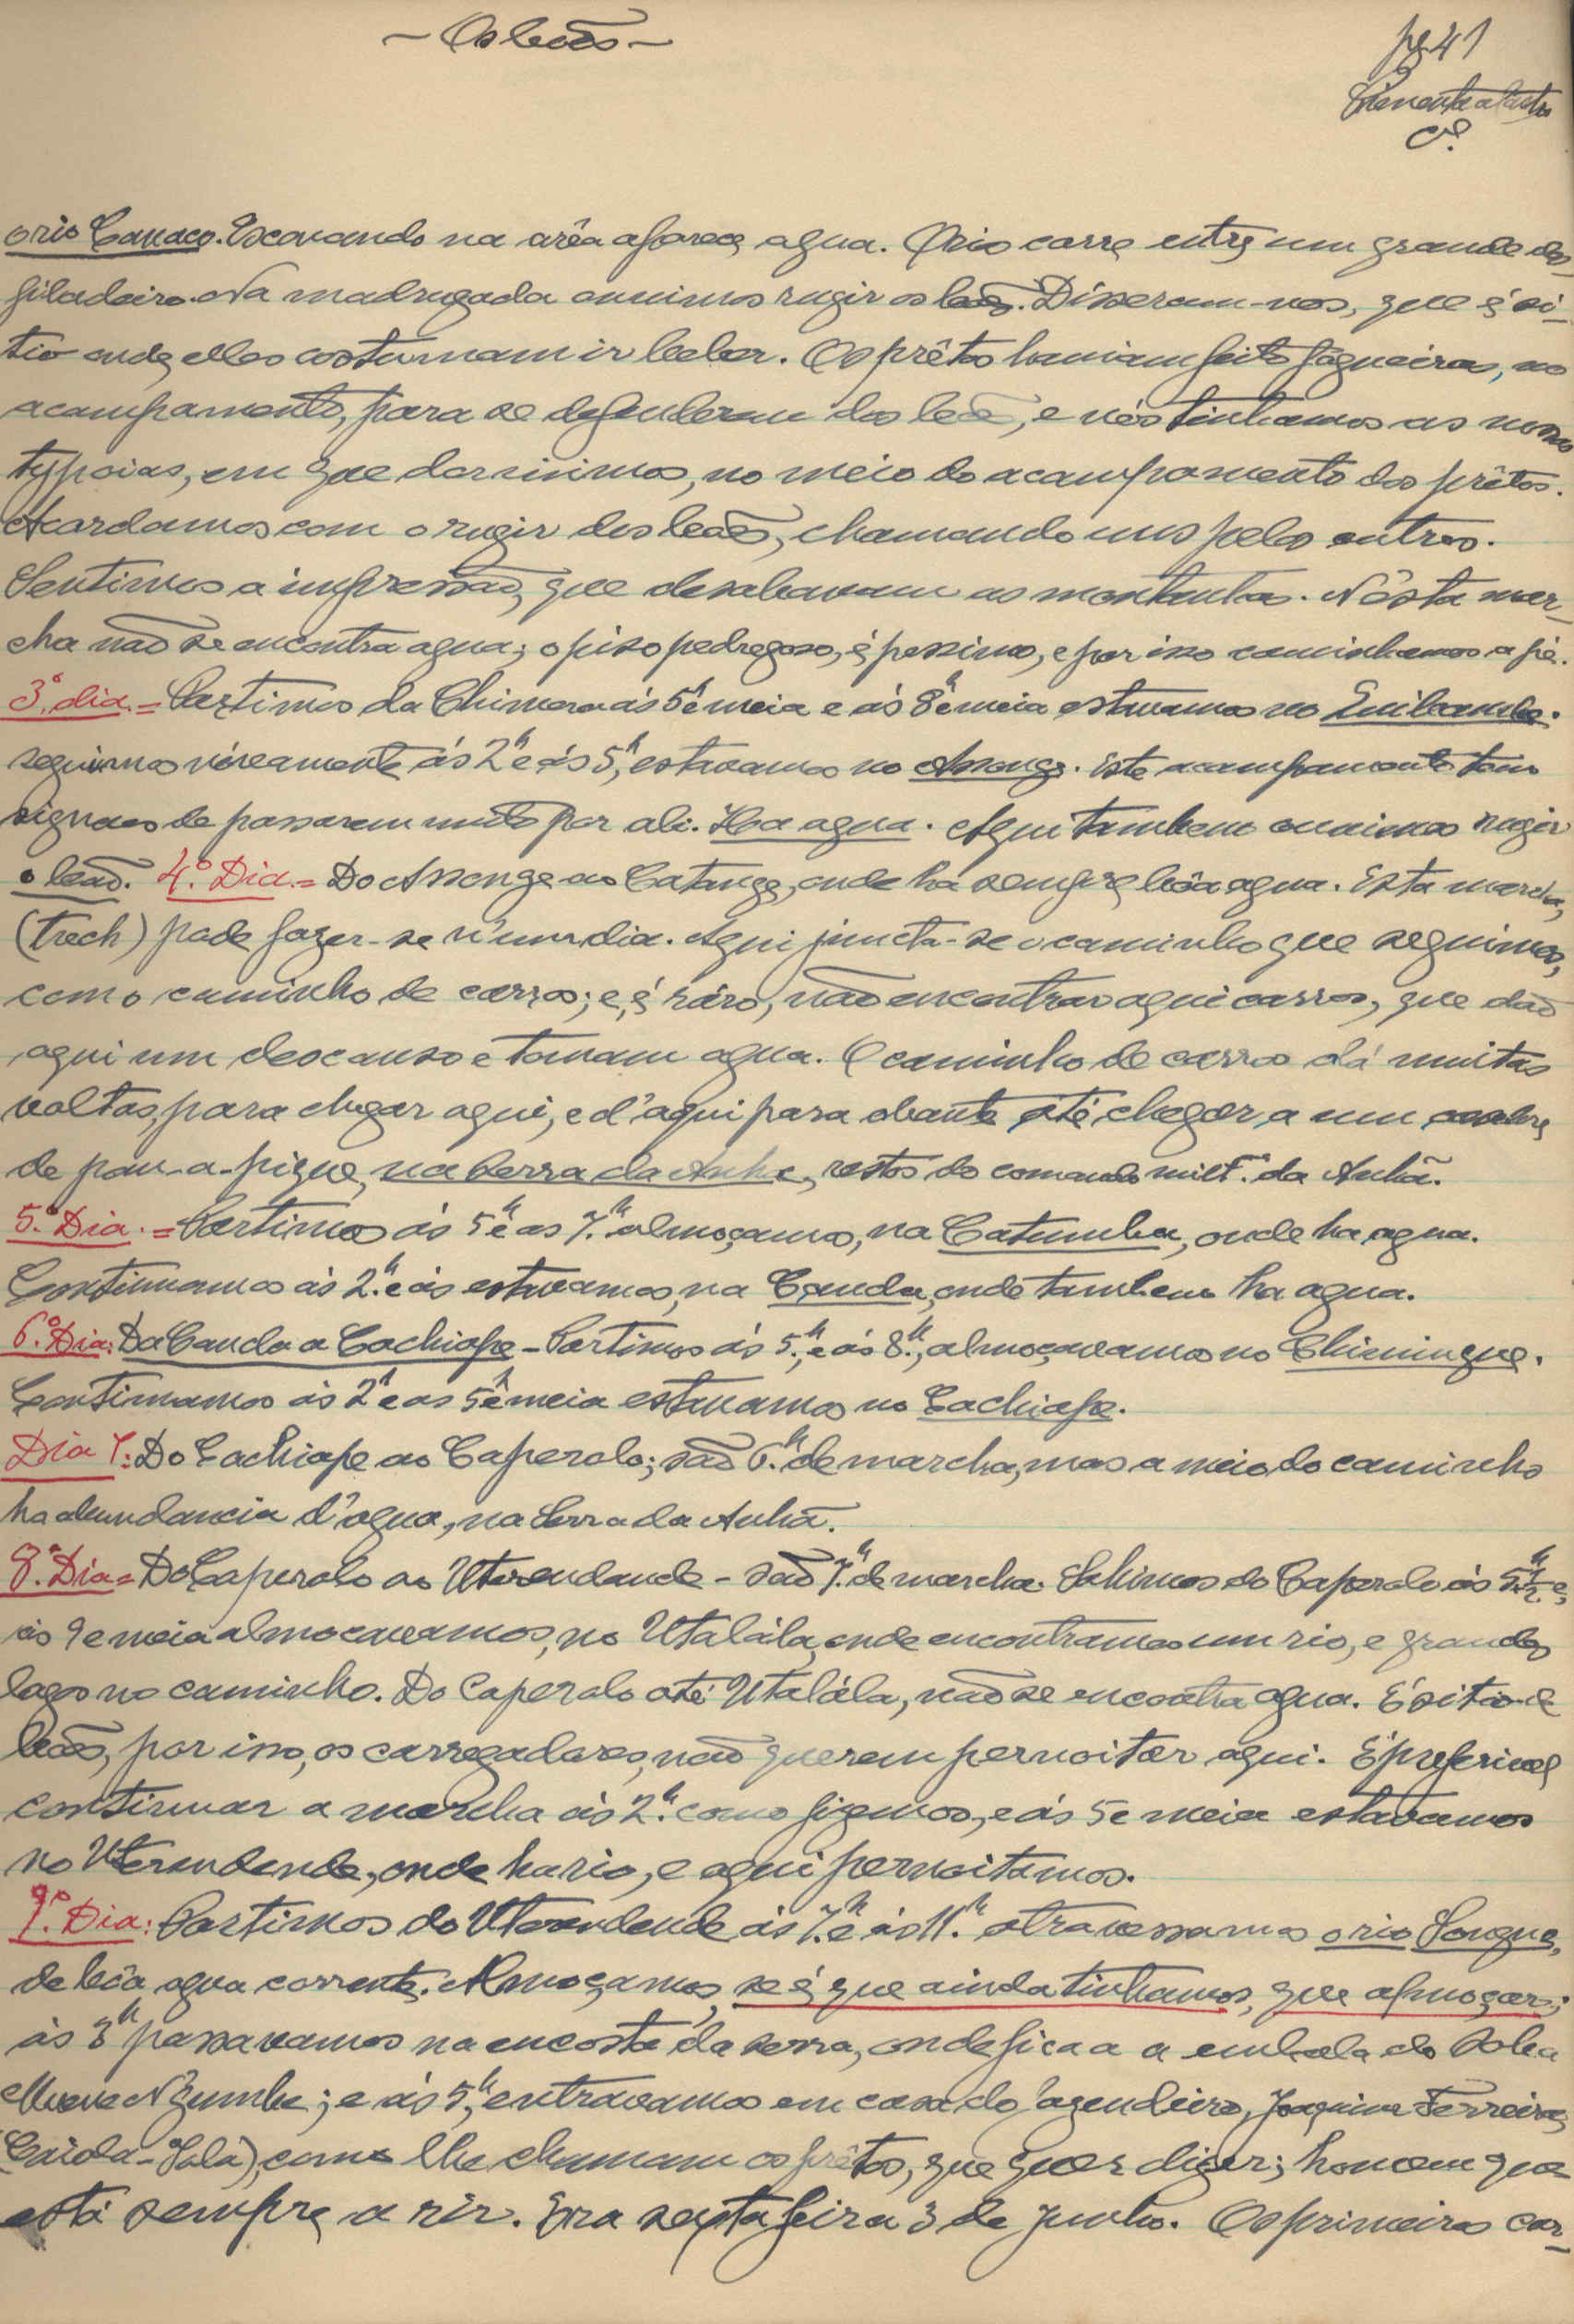 ~ Os leões ~
pg 41
Pimenta de Castro
Cel.
o rio Cavaco. Escavando na arêa aparece agua. O rio corre entre um grande des-
filadeiro. Na madrugada ouvimos rugir os leões. Disseram-nos, que é si-
tio onde elles costumam ir beber. Os prêtos haviam feito fogueiras, no
acampamento, para se defenderem dos leões, e nós tinhamos as nossas
typoias, em que dormimos, no meio do acampamento dos prêtos.
Acordamos com o rugir dos leões, chamando uns pelos outros.
Sentimos a impressão, que desabavam as montanhas. N'esta mar-
cha não se encontra agua; o piso pedregoso, é pessimo, e por isso caminhamos a pé.
3.º dia = Partimos da Chimera ás 5 h e meia e ás 8 h e meia estavamos no
seguimos nóvamente ás 2 h e ás 5 h, estavamos no Assengo. Este acampamento tem
signaes de passarem muito por ali. Ha agua. Aqui tambem ouvimos rugir
o leão. 4.º Dia = Do Assenge ao Catenge, onde há sempre bôa agua. Esta marcha,
(trech) pode fazer-se n'um dia. Aqui juncta-se o caminho que seguimos,
com o caminho de carros; e, é ráro, não encontrar aqui carros, que dão
aqui um descanso e tomam agua. O caminho de carros dá muitas
voltas, para chegar aqui, e d'aqui para deante até chegar a um
de pau-a-pique, na Serra da Anha, restos do comando milt.ar da Anhã.
5.º Dia = Partimos ás 5 h e as 7 h almoçamos, na Catumba, onde ha agua.
Continuamos ás 2 h e ás estavamos, na Canda, onde tambem ha agua.
6.º Dia: Da Canda a Cachiape - Partimos ás 5 h, e ás 8 h, almoçavamos no Chimingue.
Continuamos ás 2 h e as 5 h e meia estavamos no Cachiape.
Dia 7: Do Cachiape ao Caperalo; são 6 h de marcha, mas a meio do caminho
ha abundancia d'agua, na Serra da Anhã.
8.º Dia = Do Caperalo ao Uterendende - são 7 h de marcha. Sahimos do Caperalo ás 5 h 1/2 e,
ás 9 e meia almoçavamos, no Utalála, onde encontramos um rio, e grandes
lagos no caminho. Do Caperalo até Utalála, não se encontra agua. É sitio de
leões, por isso, os carregadores, não querem pernoitar aqui. É preferivel
continuar a marcha ás 2 h. como fizemos, e ás 5 e meia estavamos
no Uterendende, onde ha rio, e aqui pernoitamos.
9.º Dia: Partimos do Uterendende ás 7 h e ás 11 h atravessamos o rio Songue,
de bôa agua corrente. Almoçamos, se é que ainda tinhamos, que almoçar;
ás 3 h passavamos na encosta da serra, onde fica a a embala do Soba
Muene N'Zumbe; e ás 5 h, entravamos em casa do fazendeiro, Joaquim Ferreira,
(Caida-Jalá), como lhe chamam os prêtos, que quer dizer; homem que
está sempre a rir. Era sexta feira 3 de Junho. Os primeiros car-